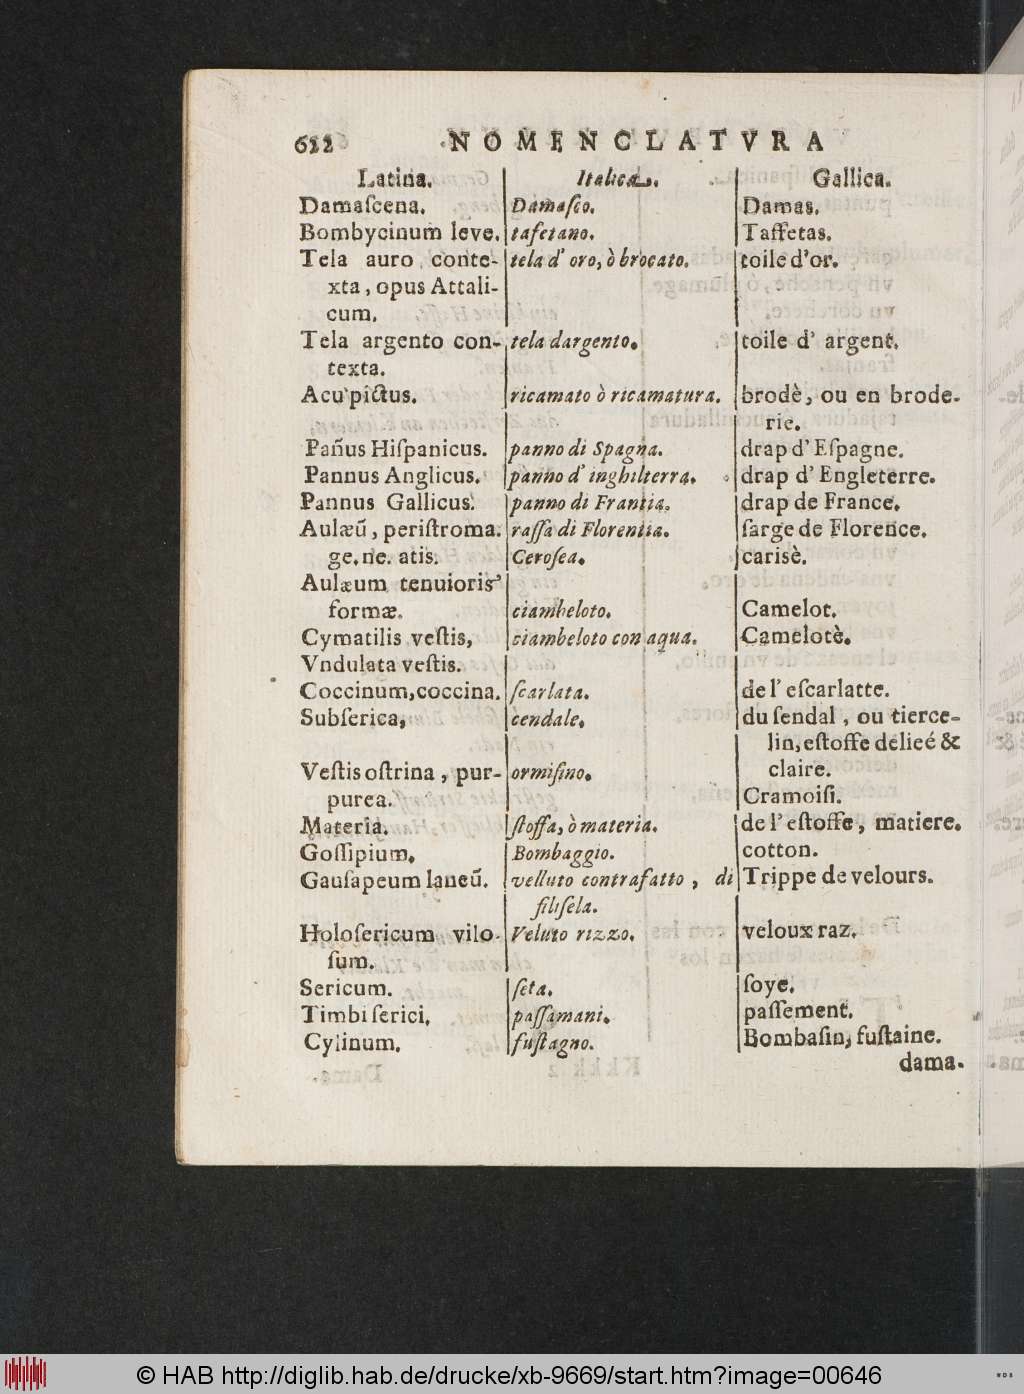 622 NOMENCLATVRA
Latina. Italica. Gallica.
Damaſcena. Damaſco. Damas.
Bombycinum leve. tafetano. Taffetas.
Tela auro conte- tela d' oro, ò brocato. toile d'or.
xta, opus Attali-
cum.
Tela argento con- tela dargento. toile d' argent.
texta.
Acu pictus. ricamato ò ricamatura. brodè, ou en brode-
rie.
Pañus Hiſpanicus. panno di Spagna. drap d' Eſpagne.
Pannus Anglicus. panno d' inghilterra. drap d' Engleterre.
Pannus Gallicus. panno di Frantia. drap de France.
Aulæũ, periſtroma. raſſa di Florentia. ſarge de Florence.
ge. ne. atis. Ceroſea. cariſè.
Aulæum tenuioris
formæ. ciambeloto. Camelot.
Cymatilis veſtis, ciambeloto con aqua. Camelotè.
Vndulata veſtis.
Coccinum, coccina. ſcarlata. de l' eſcarlatte.
Subſerica, cendale. du ſendal, ou tierce-
lin, eſtoffe delieé &
Veſtis oſtrina, pur- ormiſino. claire.
purea. Cramoiſi.
Materia. ſtoffa, ò materia. de l' eſtoffe, matiere.
Goſſipium. Bombaggio. cotton.
Gauſapeum laneũ. velluto contrafatto, di Trippe de velours.
filiſela.
Holoſericum vilo- Veluto rizzo. veloux raz.
ſum.
Sericum. ſeta. ſoye.
Timbi ſerici, paſſamani. paſſement.
Cylinum. fuſtagno. Bombaſin, fuſtaine.
dama.
© HAB http://diglib.hab.de/drucke/xb-9669/start.htm?image=00646